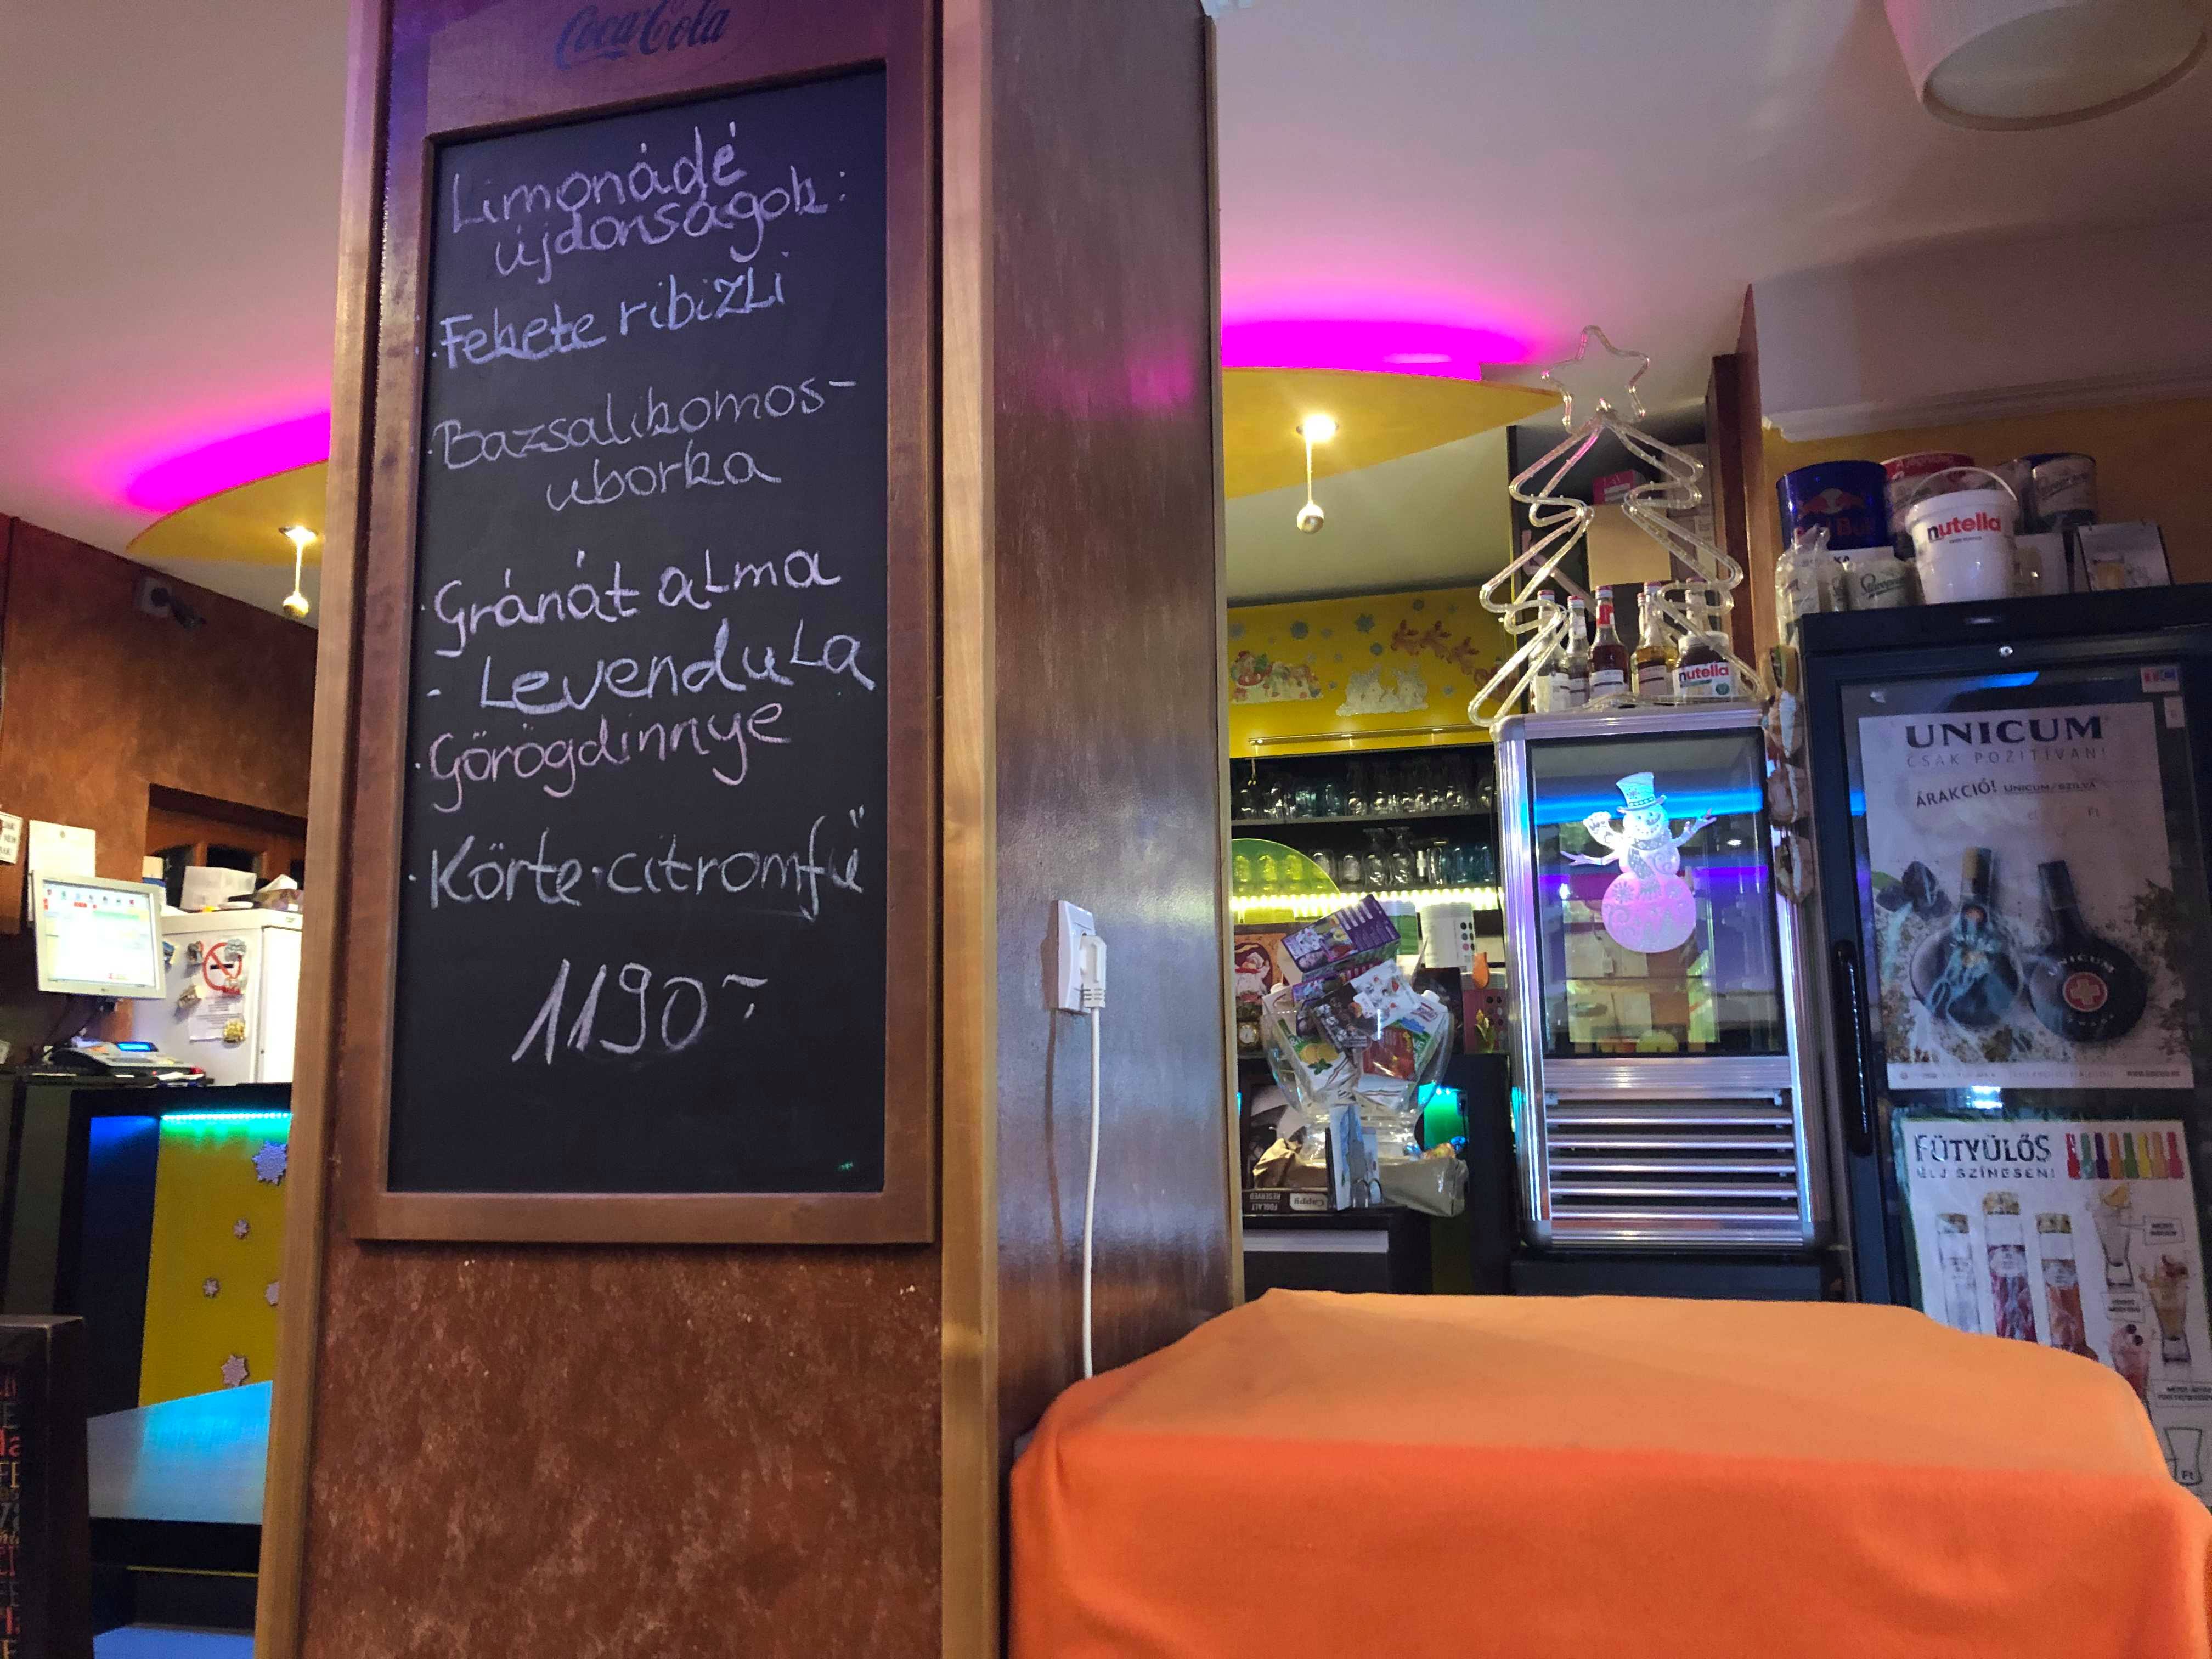 Coca-Cola
Limonádé
újdonságok:
·Fekete ribizli
·Bazsalikomos-
uborka
·Gránát alma
- Levendula
·Görögdinnye
·Körte·citromfű
1190.-
Red Bull
nutella
nutella
UNICUM
CSAK POZITÍVAN!
ÁRAKCIÓ! UNICUM/SZILVA
Ft
UNICUM
FÜTYÜLŐS
ÉLJ SZÍNESEN!
Cappy
FOGLALT
RESERVED
Ft